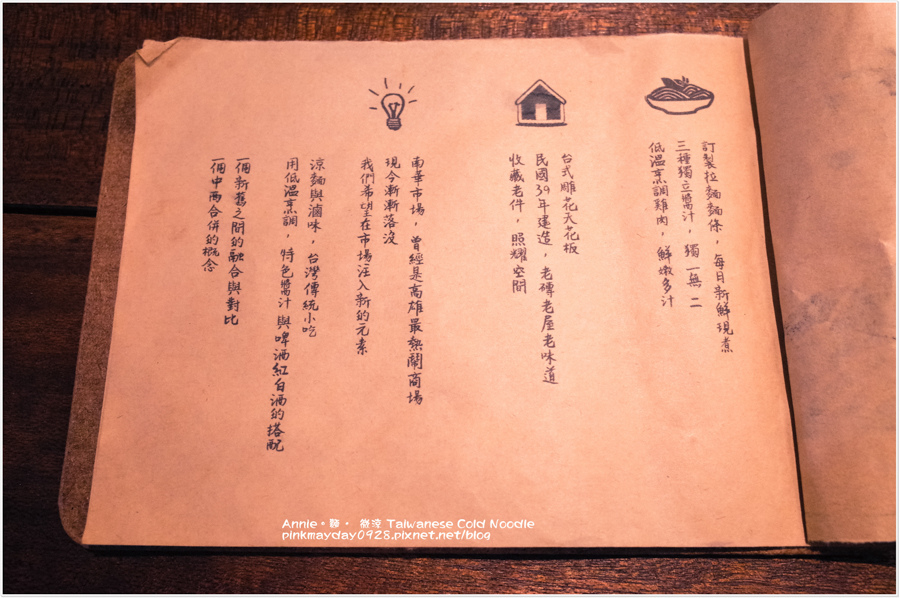 訂製拉麵麵條，每日新鮮現煮
三種獨立醬汁，獨一無二
低溫烹調雞肉，鮮嫩多汁
台式雕花天花板
民國39年建造，老磚老屋老味道
收藏老件，照耀空間
南華市場，曾經是高雄最熱鬧商場
現今漸漸落沒
我們希望在市場注入新的元素
涼麵與滷味，台灣傳統小吃
用低溫烹調，特色醬汁與啤酒紅白酒的搭配
一個新舊之間的融合與對比
一個中西合併的概念
Annie•聊• 覺涼 Taiwanese Cold Noodle
pinkmayday0928.pixnet.net/blog